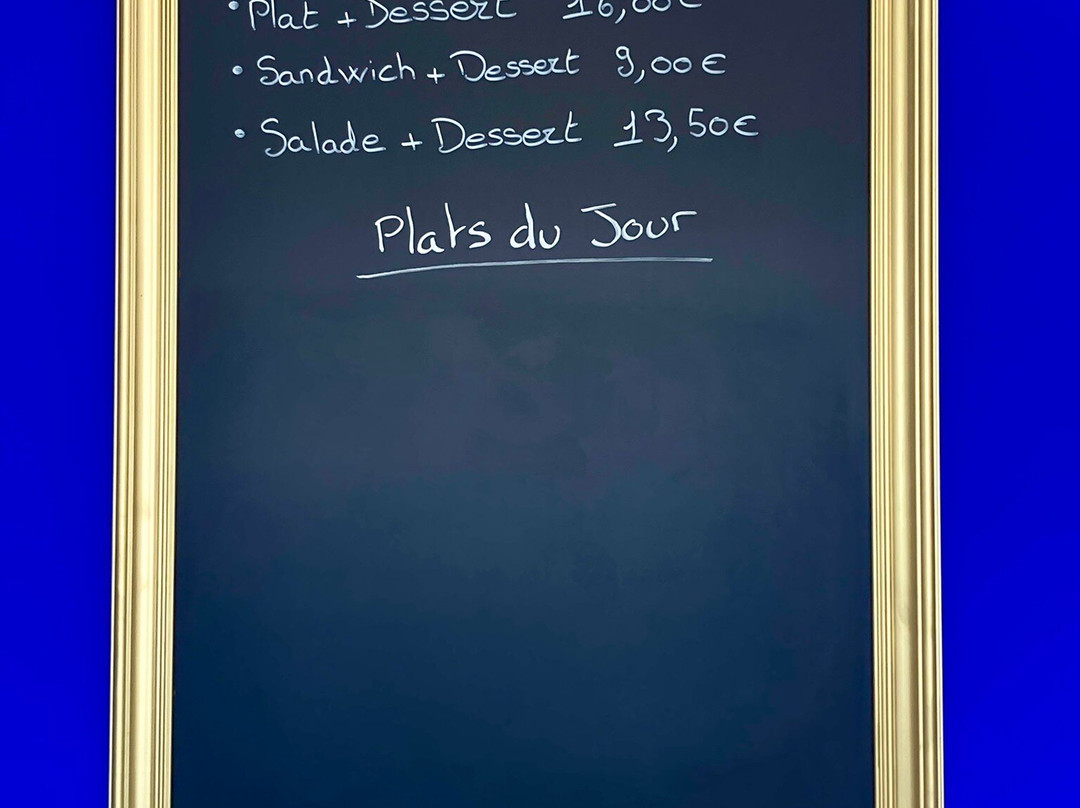 • Plat + Dessert 16,00€
• Sandwich + Dessert 9,00€
• Salade + Dessert 13,50€
Plats du Jour